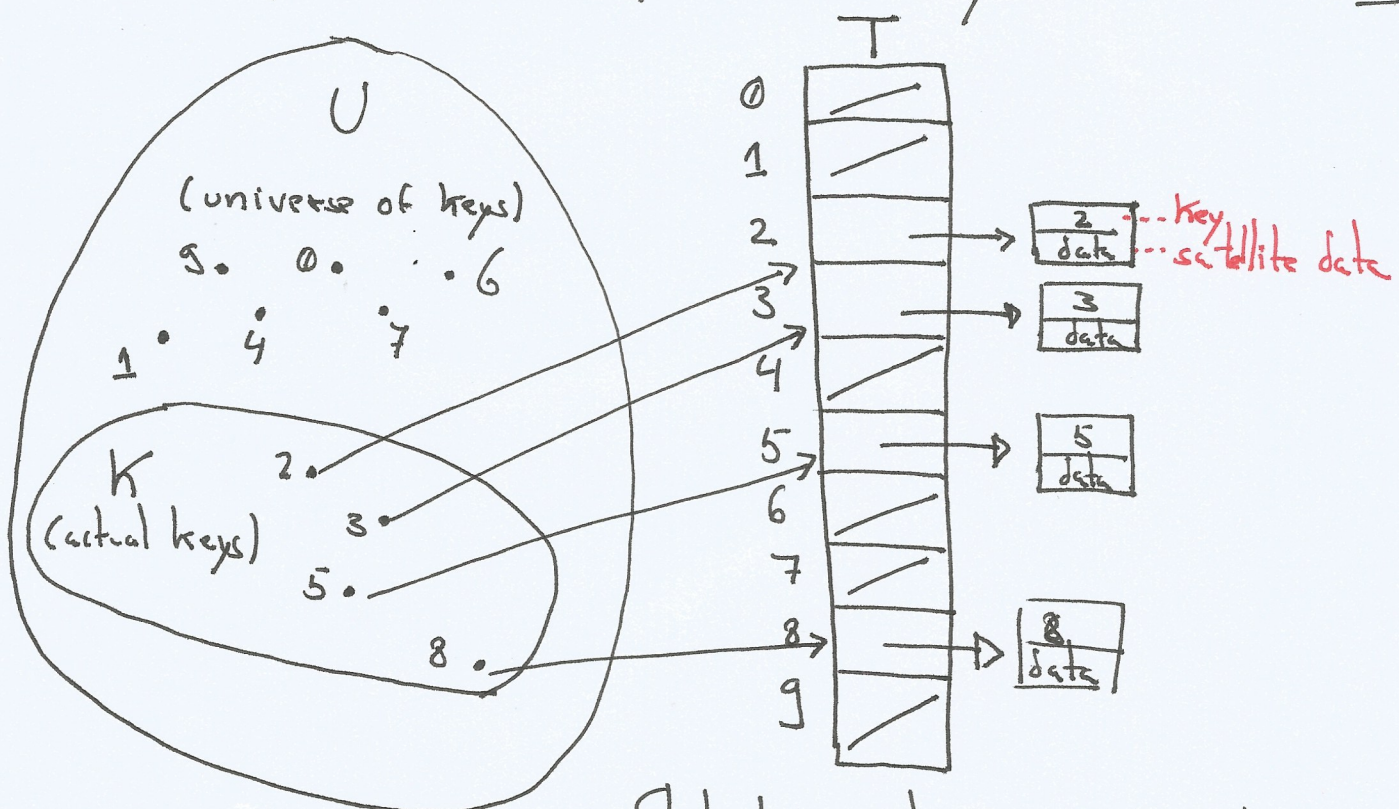 T
U
(universe of keys)
9 0 6
1 4 7
K
(actual keys)
2
3
5
8
0
1
2
3
4
5
6
7
8
9
2 key
data satellite data
3
data
5
data
8
data